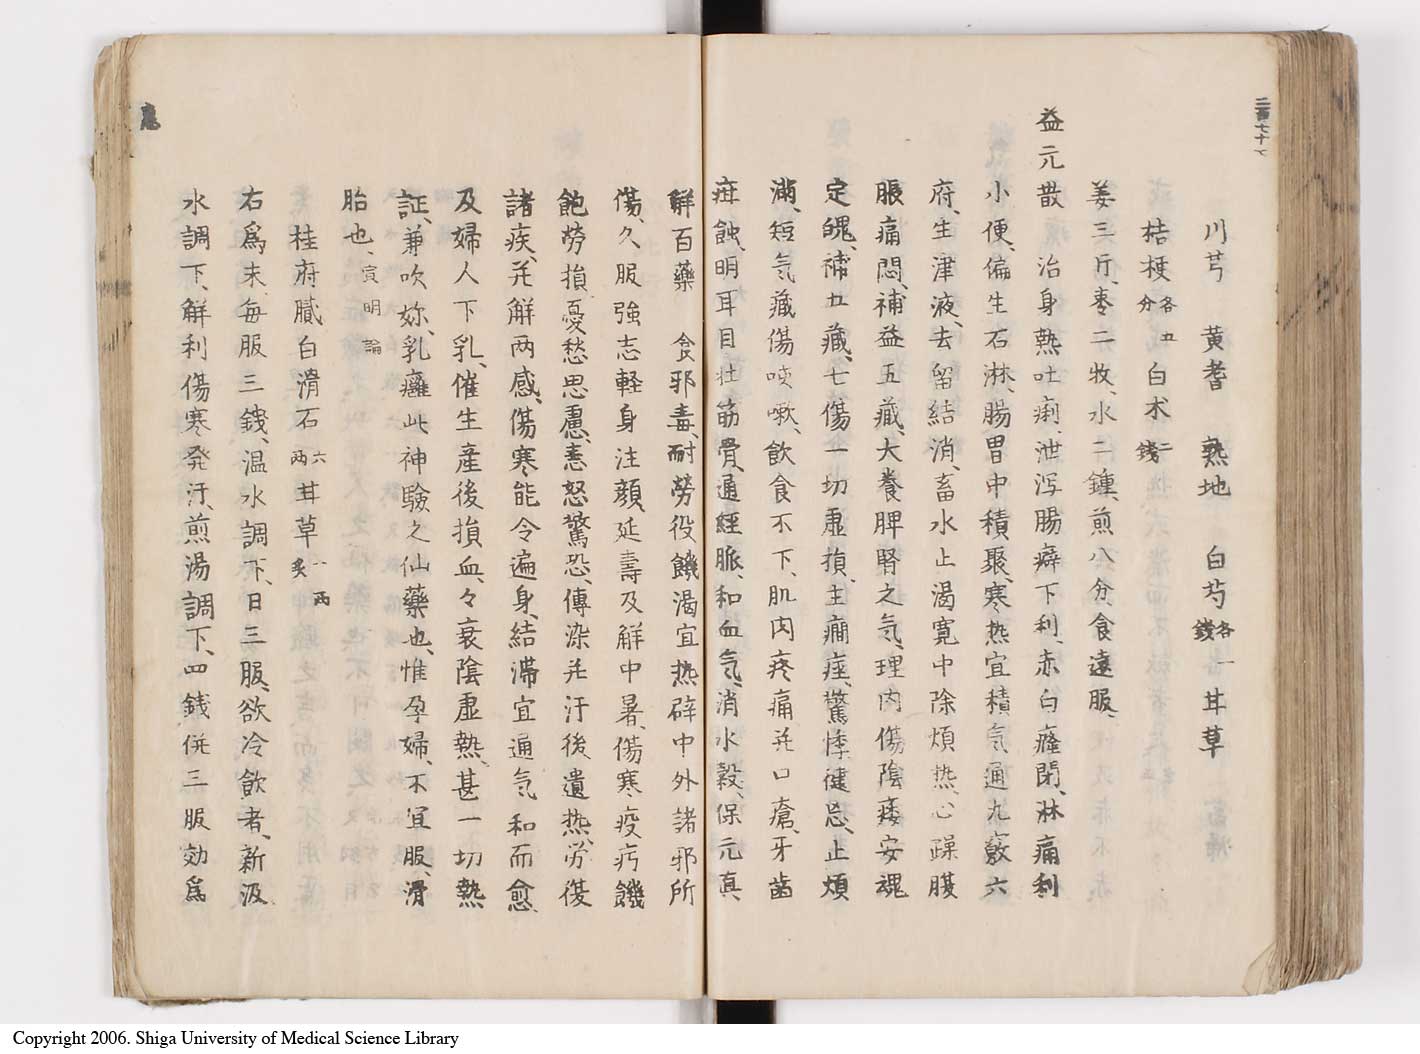 川芎　黄耆　熟地　白芍各一錢　耳草
桔梗各五分　白术二錢
姜三斤、枣二牧、水二鍾煎八分食遠服、
益元散　治身熱吐痢、泄泻腸癖下利、赤白癃閉、淋痛利
小便、偏生石淋、腸胃中積聚、寒热宜積気通九竅六
府、生津液、去留結消、畜水止渴寛中除煩热、心躁腹
脹痛悶、補益五藏、大養脾腎之気、理内傷陰痿安魂
定魄、補五藏、七傷一切虚損、主癇痓、驚悸健忘、止煩
滿、短気藏傷咳嗽、飲食不下、肌肉疼痛并口瘡、牙齒
疰蝕、明耳目壮筋骨、通経脈、和血気、消水穀、保元真、
解百藥　食邪毒、耐勞役饑渴宜热辟中外諸邪所
傷、久服強志軽身注顔、延壽及解中暑、傷寒疫疠饑
飽勞損、憂愁思慮、恚怒驚恐、傳染并汗後遺热、労復
諸疾、并解两感、傷寒能令遍身、結滞宜通気和而愈、
及婦人下乳、催生産後損血、々衰陰虚熱、甚一切熱
証、兼吹妳、乳癰此神驗之仙藥也、惟孕婦、不宜服、滑
胎也、宣明論
桂府膩白滑石六两　耳草炙一两
右為末、毎服三錢、温水調下、日三服、欲冷飲者、新汲
水調下、解利傷寒発汗、煎湯調下、四錢併三服効為
二百七十
Copyright 2006. Shiga University of Medical Science Library